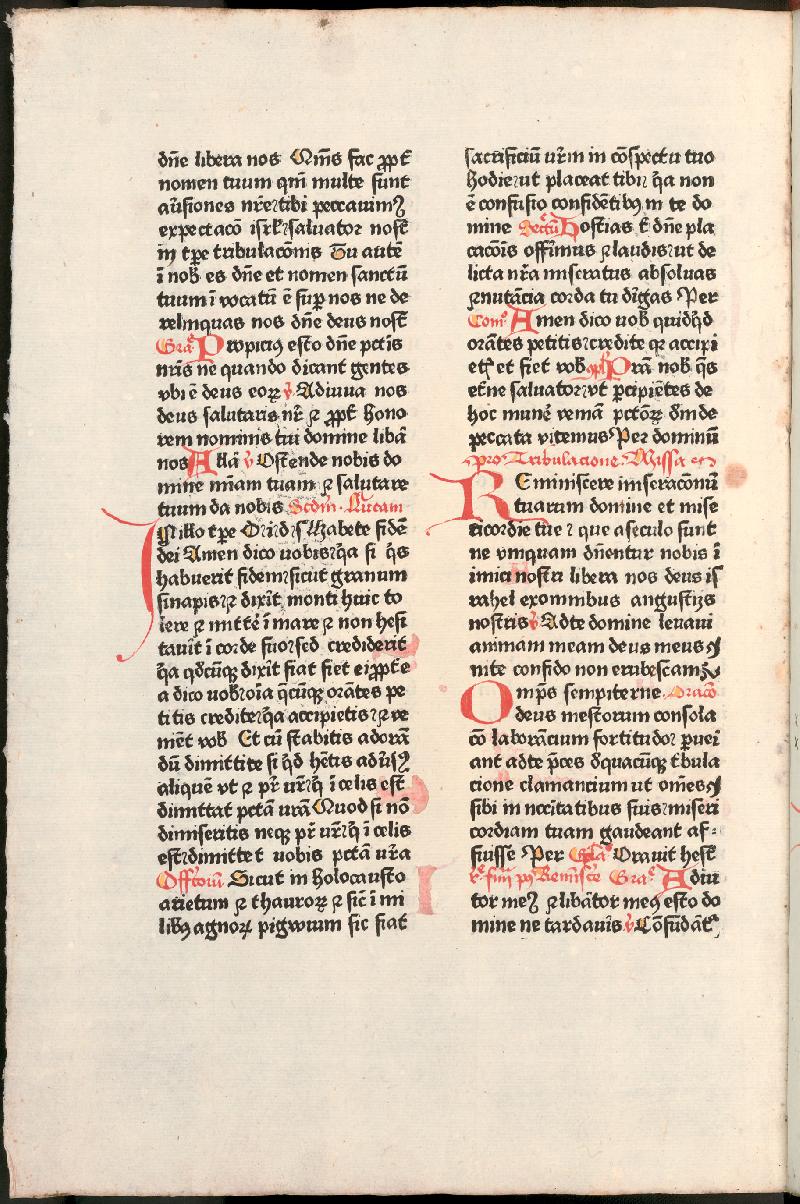 dn̄e libera nos Om̄s fac ꝓpt̄
nomen tuum qm̄ multe sunt
au̓siones nr̄e tibi peccauimꝯ
expectacō isrl̓ saluator nost̄
in tp̄e tribulacōnis Tu autē
ī nob̓ es dn̄e et nomen sanctū
tuum ī vocatū ē sup̓ nos ne de
relinquas nos dn̄e deus nost̄
Gra. Propicius esto dn̄e pctīs
nr̄is ne quando dicant gentes
vbi ē deus eoꝝ ℣ Adiuua nos
deus salutaris nr̄ ⁊ ꝓpt̄ hono
rem nominis tui domine libā
nos Allā ℣ Ostende nobis do
mine mīam tuam ⁊ salutare
tuum da nobis Scdm̄. Lucam
In illo tp̄e Dix̄ ds̄ Habete fidē
dei Amen dico uobis q̄a si q̓s
habuerit fidem sicut granum
sinapis ⁊ dixīt monti huic to
lere ⁊ mittē ī mare ⁊ non hesi
tauīt ī corde suo sed crediderīt
q̄a qd̓cūqꝫ dixīt fiat fiet ei ꝓpt̄e
a dico uob̓ oīa q̄cūqꝫ orātes pe
titis credite q̄a accipietis ⁊ ve
niēt vob̓ Et cū stabitis ad orā
dū dimittite si q̓d hētis adu̓sꝯ
aliquē vt ⁊ pr̄ ur̄ q̓ ī celis est̄
dimittat pctā urā Quod si nō
dimiseritis neqꝫ pr̄ ur̄ q̓ ī celis
est dimittet uobis pctā ur̄a
Offtorū Sicut in holocausto
arietum ⁊ thauroꝝ ⁊ sic̄ ī mi
libꝰ agnoꝝ pigwium sic fiat
sacrificiū ur̄m in cōspectu tuo
hodie ut placeat tibi q̄a non
ē confusio confidētibꝰ in te do
mine Sectū Hostias t̄ dn̄e pla
cacōis off̓imus ⁊ laudis ut de
licta nr̄a miseratus absoluas
⁊ nutācia corda tu dīgas Per
Com̄. Amen dico uob̓ quidq̓d
orātes petitis credite qꝫ accipi
etꝭ et fiet vob̓ ꝯpl̄ Prā nob̓ q̄s
etn̄e saluator vt p̄cipiētes de
hoc munē vemā pctōꝝ d̓inde
peccata vitemus Per dominū
pro Tribulacione. Missa etc̄
Reminiscere miseracōnū
tuarum domine et mise
ricordie tue ⁊ que a seculo sunt
ne vmquam dn̄entur nobis ī
imici nostri libera nos deus is̓
rahel ex omnibus angustijs
nostris ℣ Ad te domine leuaui
animam meam deus meus ī
nite confido non erubescam
Omp̄s sempiterne. Oracō
deus mestorum consola
cō laborācium fortitudo p̄uei
ant ad te p̄ces d̓quacūqꝫ t̓bula
cione clamancium ut omēs
sibi in nccītatibus suis miseri
cordiam tuam gaudeant af-
fuisse Per Epl̄a Orauit hest̄
Remiscē Gra. Adiu
tor meꝰ ⁊ libātor meꝰ esto do
mine ne tardauīs ℣ Cōfūdāt̓